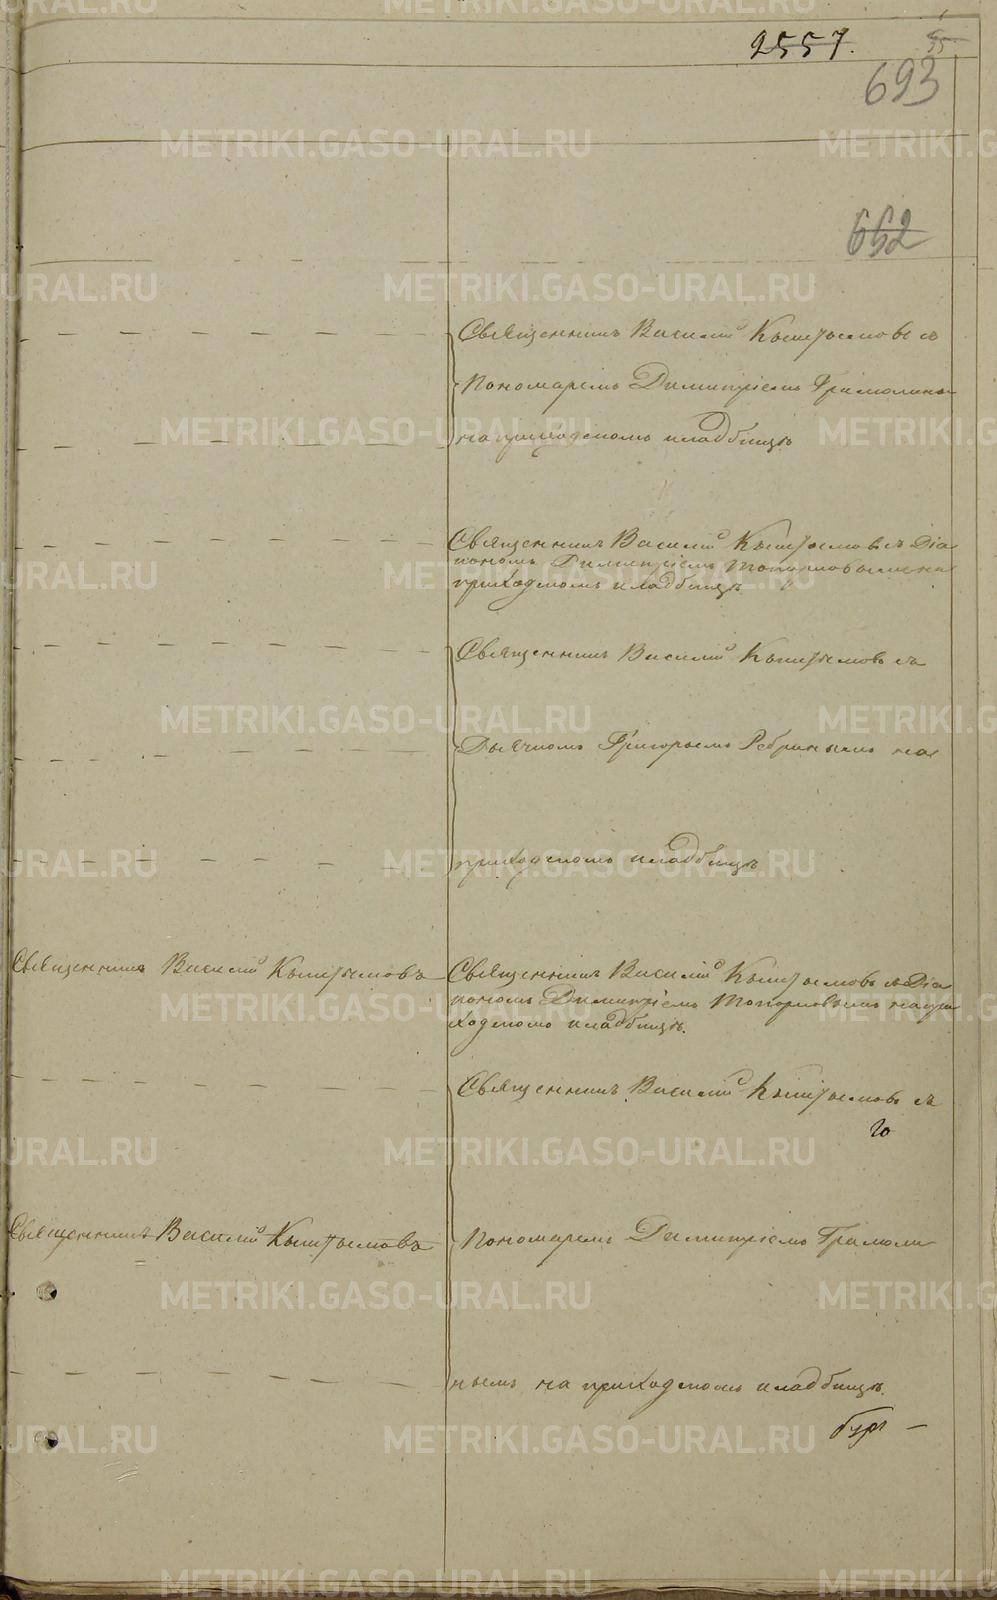 2557.
693
652
Священникъ Василій Кыштымовъ съ
Пономаремъ Димитріемъ
на приходскомъ кладбищѣ
Священникъ Василій Кыштымовъ съ Діа
кономъ Димитріемъ Топорковымъ на
приходскомъ кладбищѣ
Священникъ Василій Кыштымовъ съ
Дьячкомъ Григорьемъ Ребринымъ на
приходскомъ кладбищѣ
Священникъ Василій Кыштымовъ
Священникъ Василій Кыштымовъ съ Діа
кономъ Димитріемъ Топорковымъ на при
ходскомъ кладбищѣ.
Священникъ Василій Кыштымовъ съ
Священникъ Василій Кыштымовъ
Пономаремъ Димитріемъ
нымъ на приходскомъ кладбищѣ.
METRIKI.GASO-URAL.RU